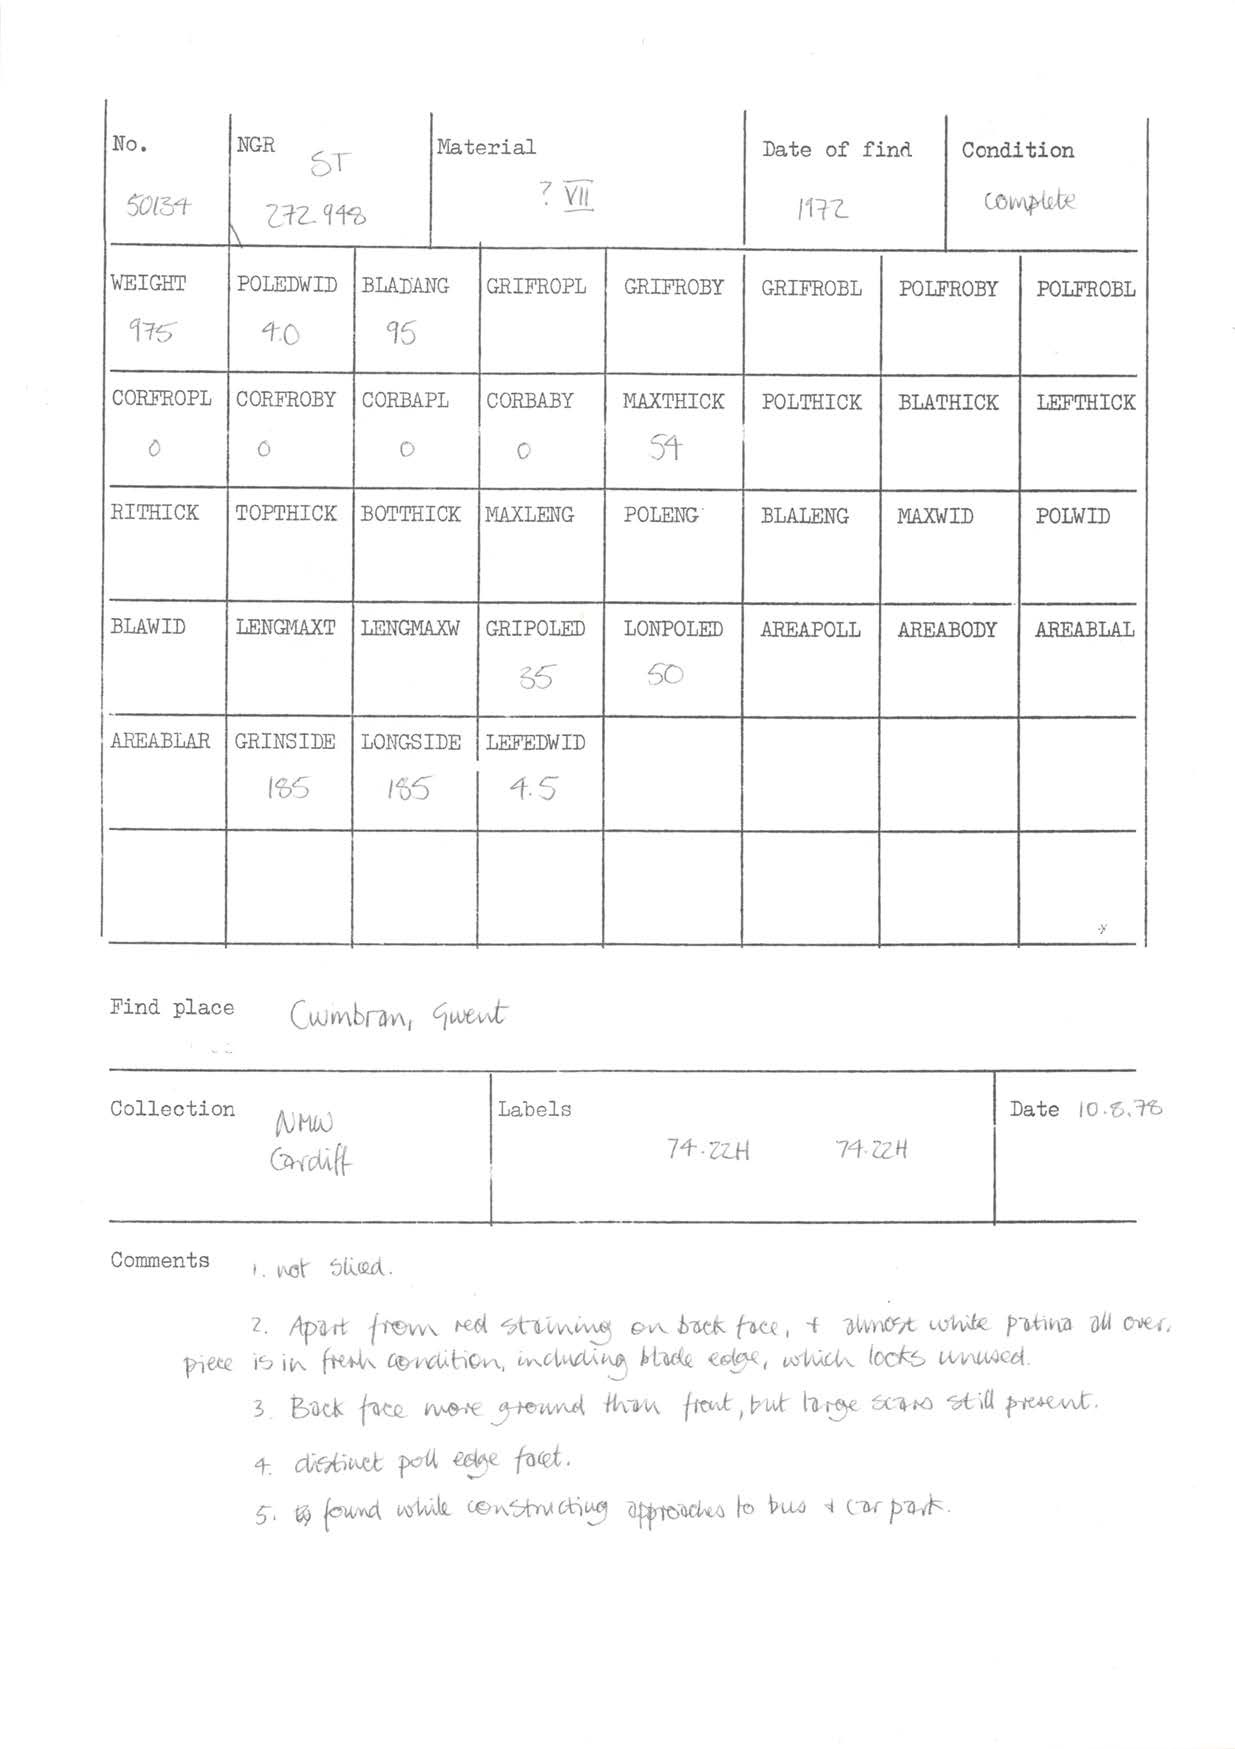 No. NGR Material Date of find Condition
ST
50134 272.948 ? VII 1972 complete
WEIGHT POLEDWID BLADANG GRIFROPL GRIFROBY GRIFROBL POLFROBY POLFROBL
975 4.0 95
CORFROPL CORFROBY CORBAPL CORBABY MAXTHICK POLTHICK BLATHICK LEFTHICK
0 0 0 0 54
RITHICK TOPTHICK BOTTHICK MAXLENG POLENG BLALENG MAXWID POLWID
BLAWID LENGMAXT LENGMAXW GRIPOLED LONPOLED AREAPOLL AREABODY AREABLAL
35 50
AREABLAR GRINSIDE LONGSIDE LEFEDWID
185 185 4.5
Find place Cwmbran, Gwent
Collection Labels Date 10.8.78
NMW
Cardiff 74.22H 74.22H
Comments 1. not sliced.
2. Apart from red staining on back face, + almost white patina all over,
piece is in fresh condition, including blade edge, which looks unused.
3. Back face more ground than front, but large scars still present.
4. distinct poll edge facet.
5. found while constructing approaches to bus + car park.